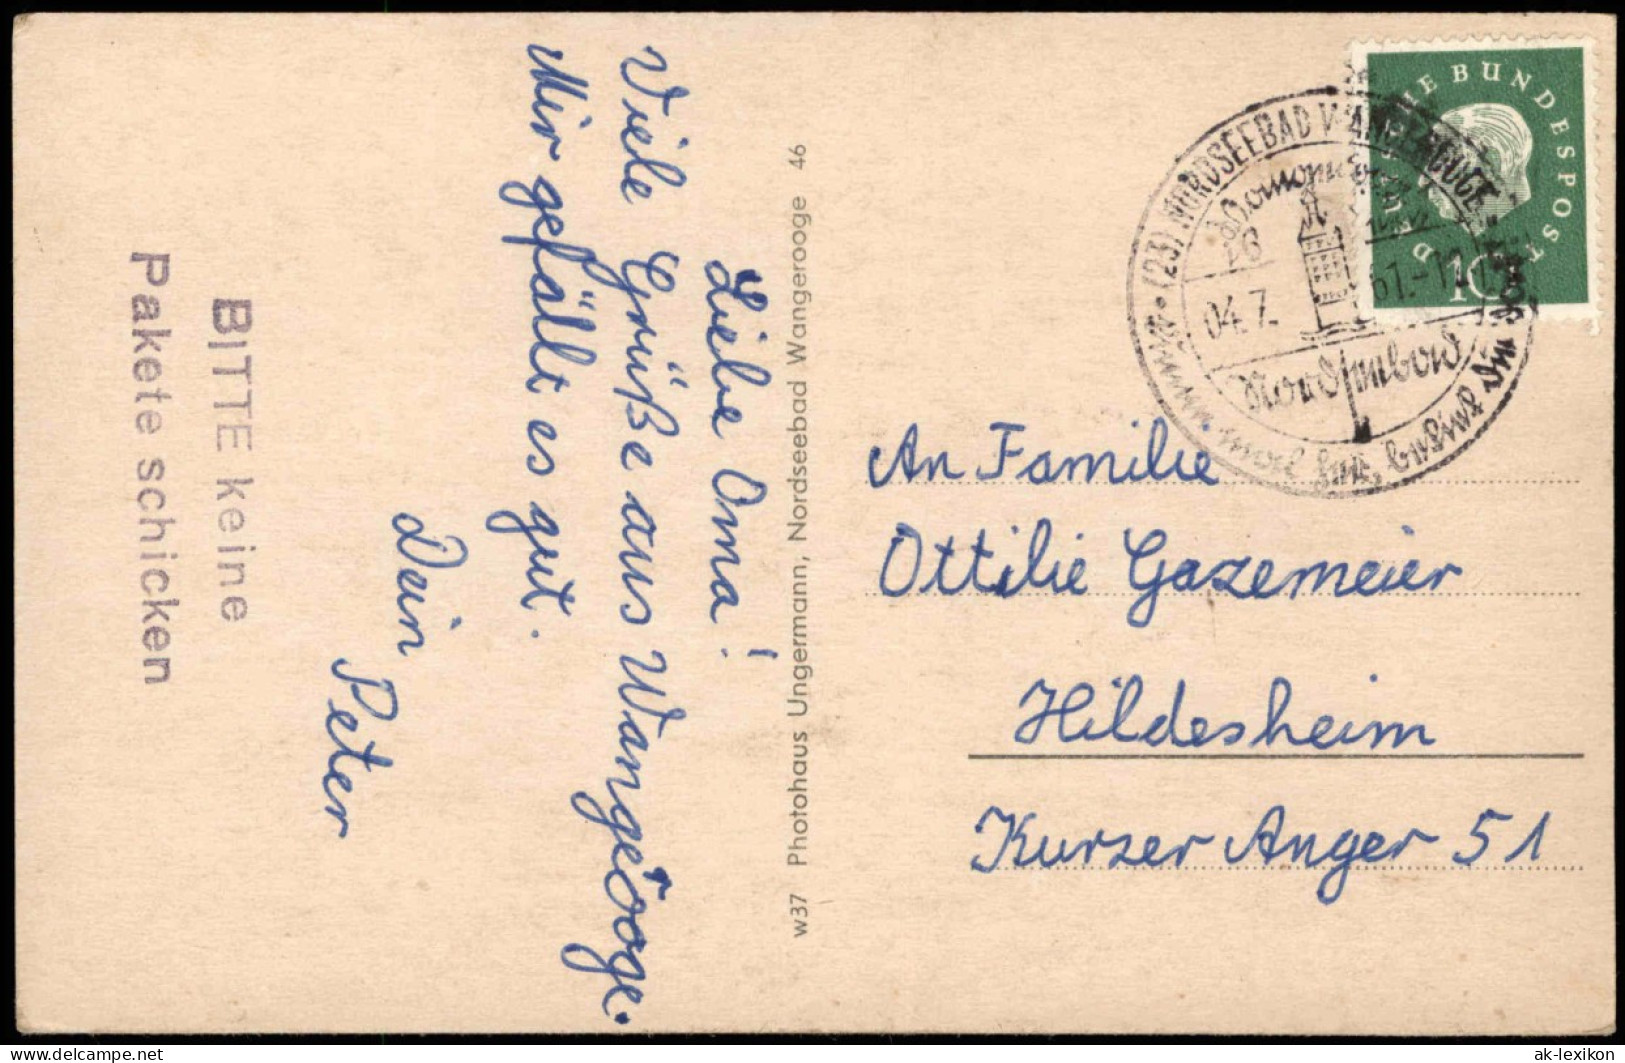 Liebe Oma!
Viele Grüße aus Wangerooge.
Mir gefällt es gut.
Dein
Peter
BITTE keine
Pakete schicken
w37 Photohaus Ungermann, Nordseebad Wangerooge 46
BUNDESPOST
10
(23) NORDSEEBAD WANGEROOGE
04.7.
61.-12
Nordseebad
An Familie
Ottilie Gazemeier
Hildesheim
Kurzer Anger 51
ak-lexikon
delcampe.net